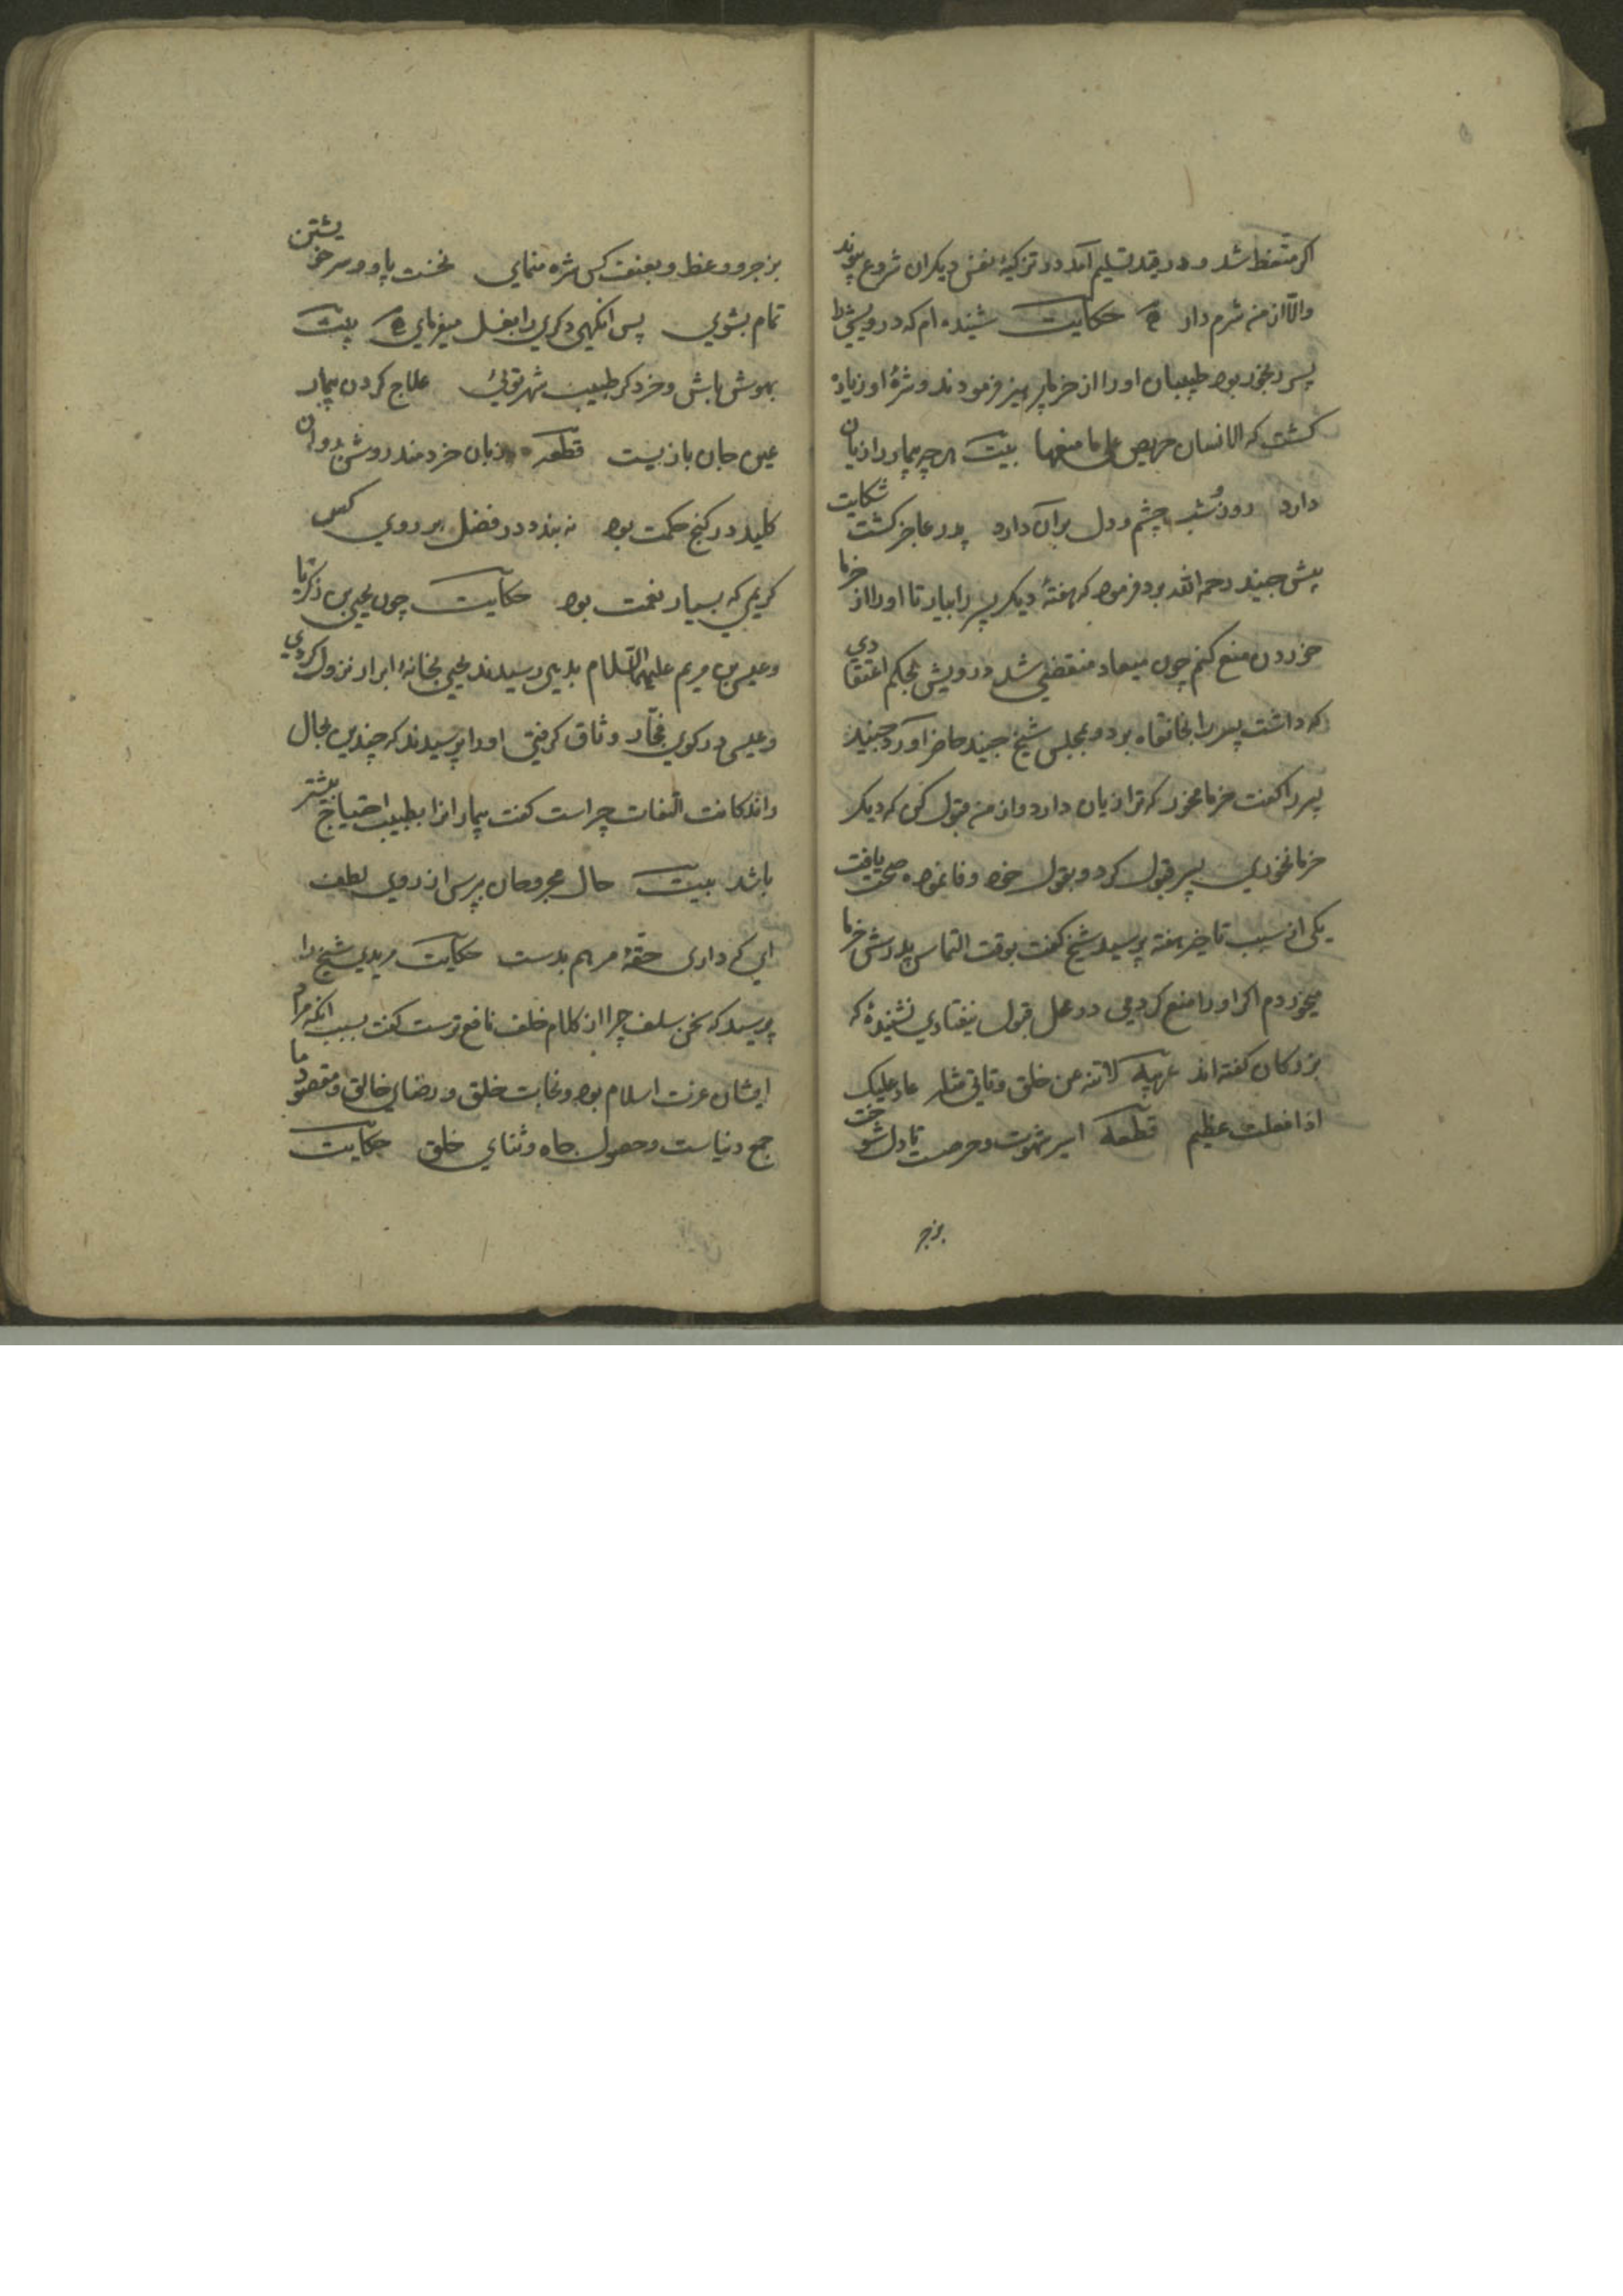 اگر متعظ شد و در قید تسلیم آمد در تزکیهٔ نفس دیگران شروع پیوند
والّا از من شرم دار حکایت شنیده‌ام که درویشی را
پسر رنجور بود طبیبان او را از خرما پرهیز فرمودند و شرهٔ او زیاده
گشت که الانسان حریص علی ما منع بیت هر چه بیمار را زیان
دارد روز و شب چشم و دل بر آن دارد پدر عاجز گشت شکایت
پیش جنید رحمه الله برد فرمود که هفتهٔ دیگر پسر را بیار تا او را از خرما
خوردن منع کنم چون میعاد منقضی شد درویش بحکم اعتقادی
که داشت پسر را بخانقاه برد و بمجلس شیخ جنید حاضر آورد جنید
پسر را گفت خرما مخور که ترا زیان دارد و از من قبول کن که دیگر
خرما نخوری پسر قبول کرد و بقول خود وفا نمود صحت یافت
یکی از سبب تاخیر هفته پرسید شیخ گفت بوقت التماس پدرش خرما
میخوردم اگر او را منع کردمی در محل قبول نیفتادی نشنیدهٔ که
بزرگان گفته‌اند عربیه لا تنه عن خلق و تاتی مثله عار علیک
اذا فعلت عظیم قطعه اسیر شهوت و حرصت تا دل شوخت
بزجر
بزجر و وعظ و بعنف کس شره منمای نخست پا و سر خویشتن
تمام بشوی پس انگهی دگری را بغسل میفرمای بیت
بهوش باش و خرد گر طبیب شهر توئی علاج کردن بیمار
عین جان بازیست قطعه زبان خردمند روشن روان
کلید در گنج حکمت بود نه بندد در فضل بر روی کس
کریمی که بسیار نعمت بود حکایت چون یحیی بن زکریا
و عیسی بن مریم علیهما السلام بدیهی رسیدند یحیی بخانهٔ ابرار نزول کردی
و عیسی در کوی فجّار وثاق گرفتی او را پرسیدند که چندین بحال
التفات چراست گفت بیماران را بطبیب احتیاج بیشتر
باشد بیت حال مجروحان بپرس از روی لطف
ای که داری حقهٔ مرهم بدست حکایت مریدی شیخ را
پرسید که سخن سلف چرا از کلام خلف نافع ترست گفت بسبب انکه مراد
ایشان عزت اسلام بود و نجات خلق و رضای خالق و مقصود ما
جمع دنیاست و حصول جاه و ثنای خلق حکایت